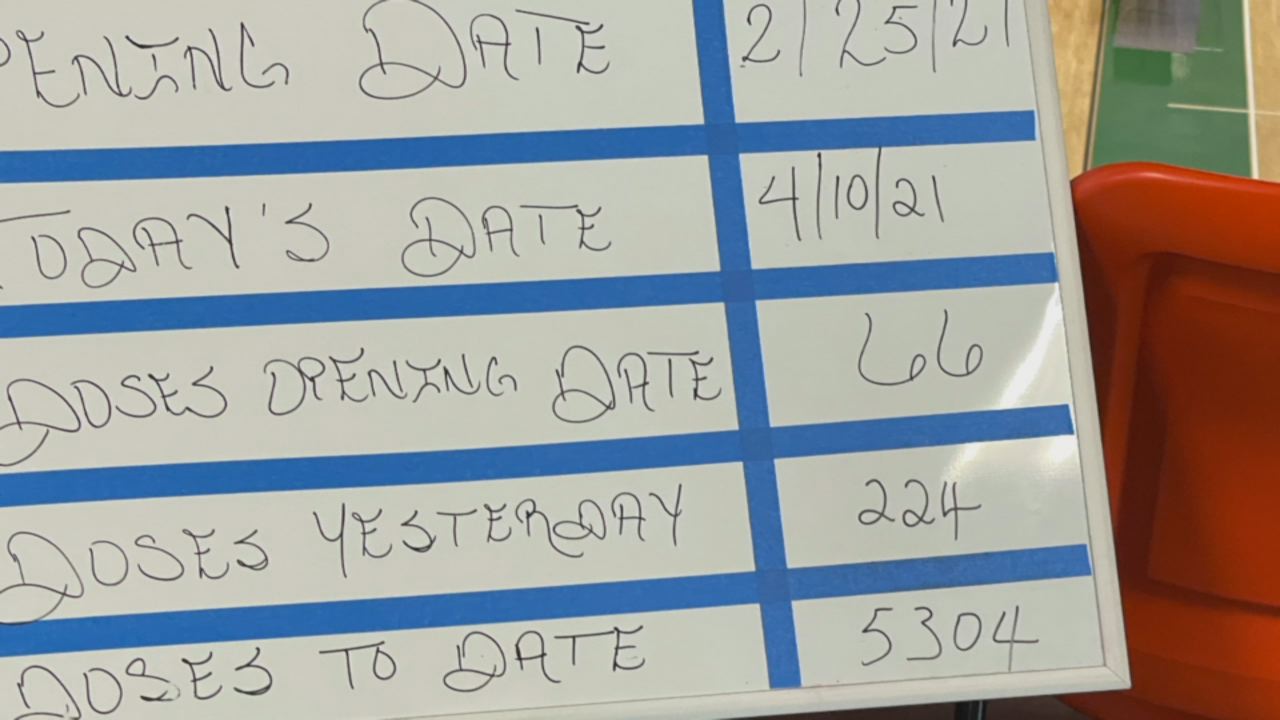 PENING DATE 2/25/21
TODAY'S DATE 4/10/21
DOSES OPENING DATE 66
DOSES YESTERDAY 224
DOSES TO DATE 5304